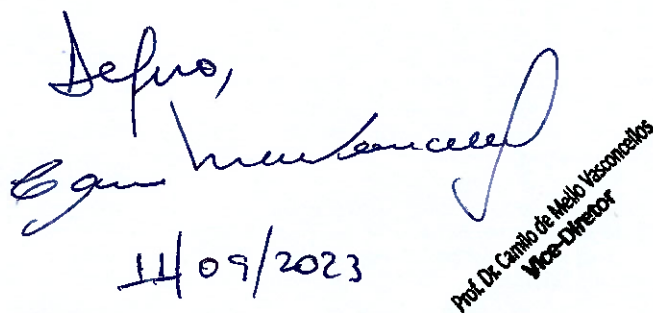 Defiro,
11/09/2023
Prof. Dr. Camilo de Mello Vasconcellos
Vice-Diretor